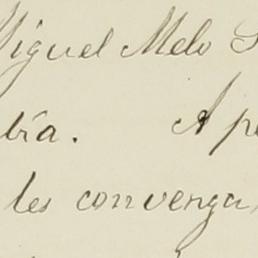 Miguel Melo S
bía. A pe
les convenga,